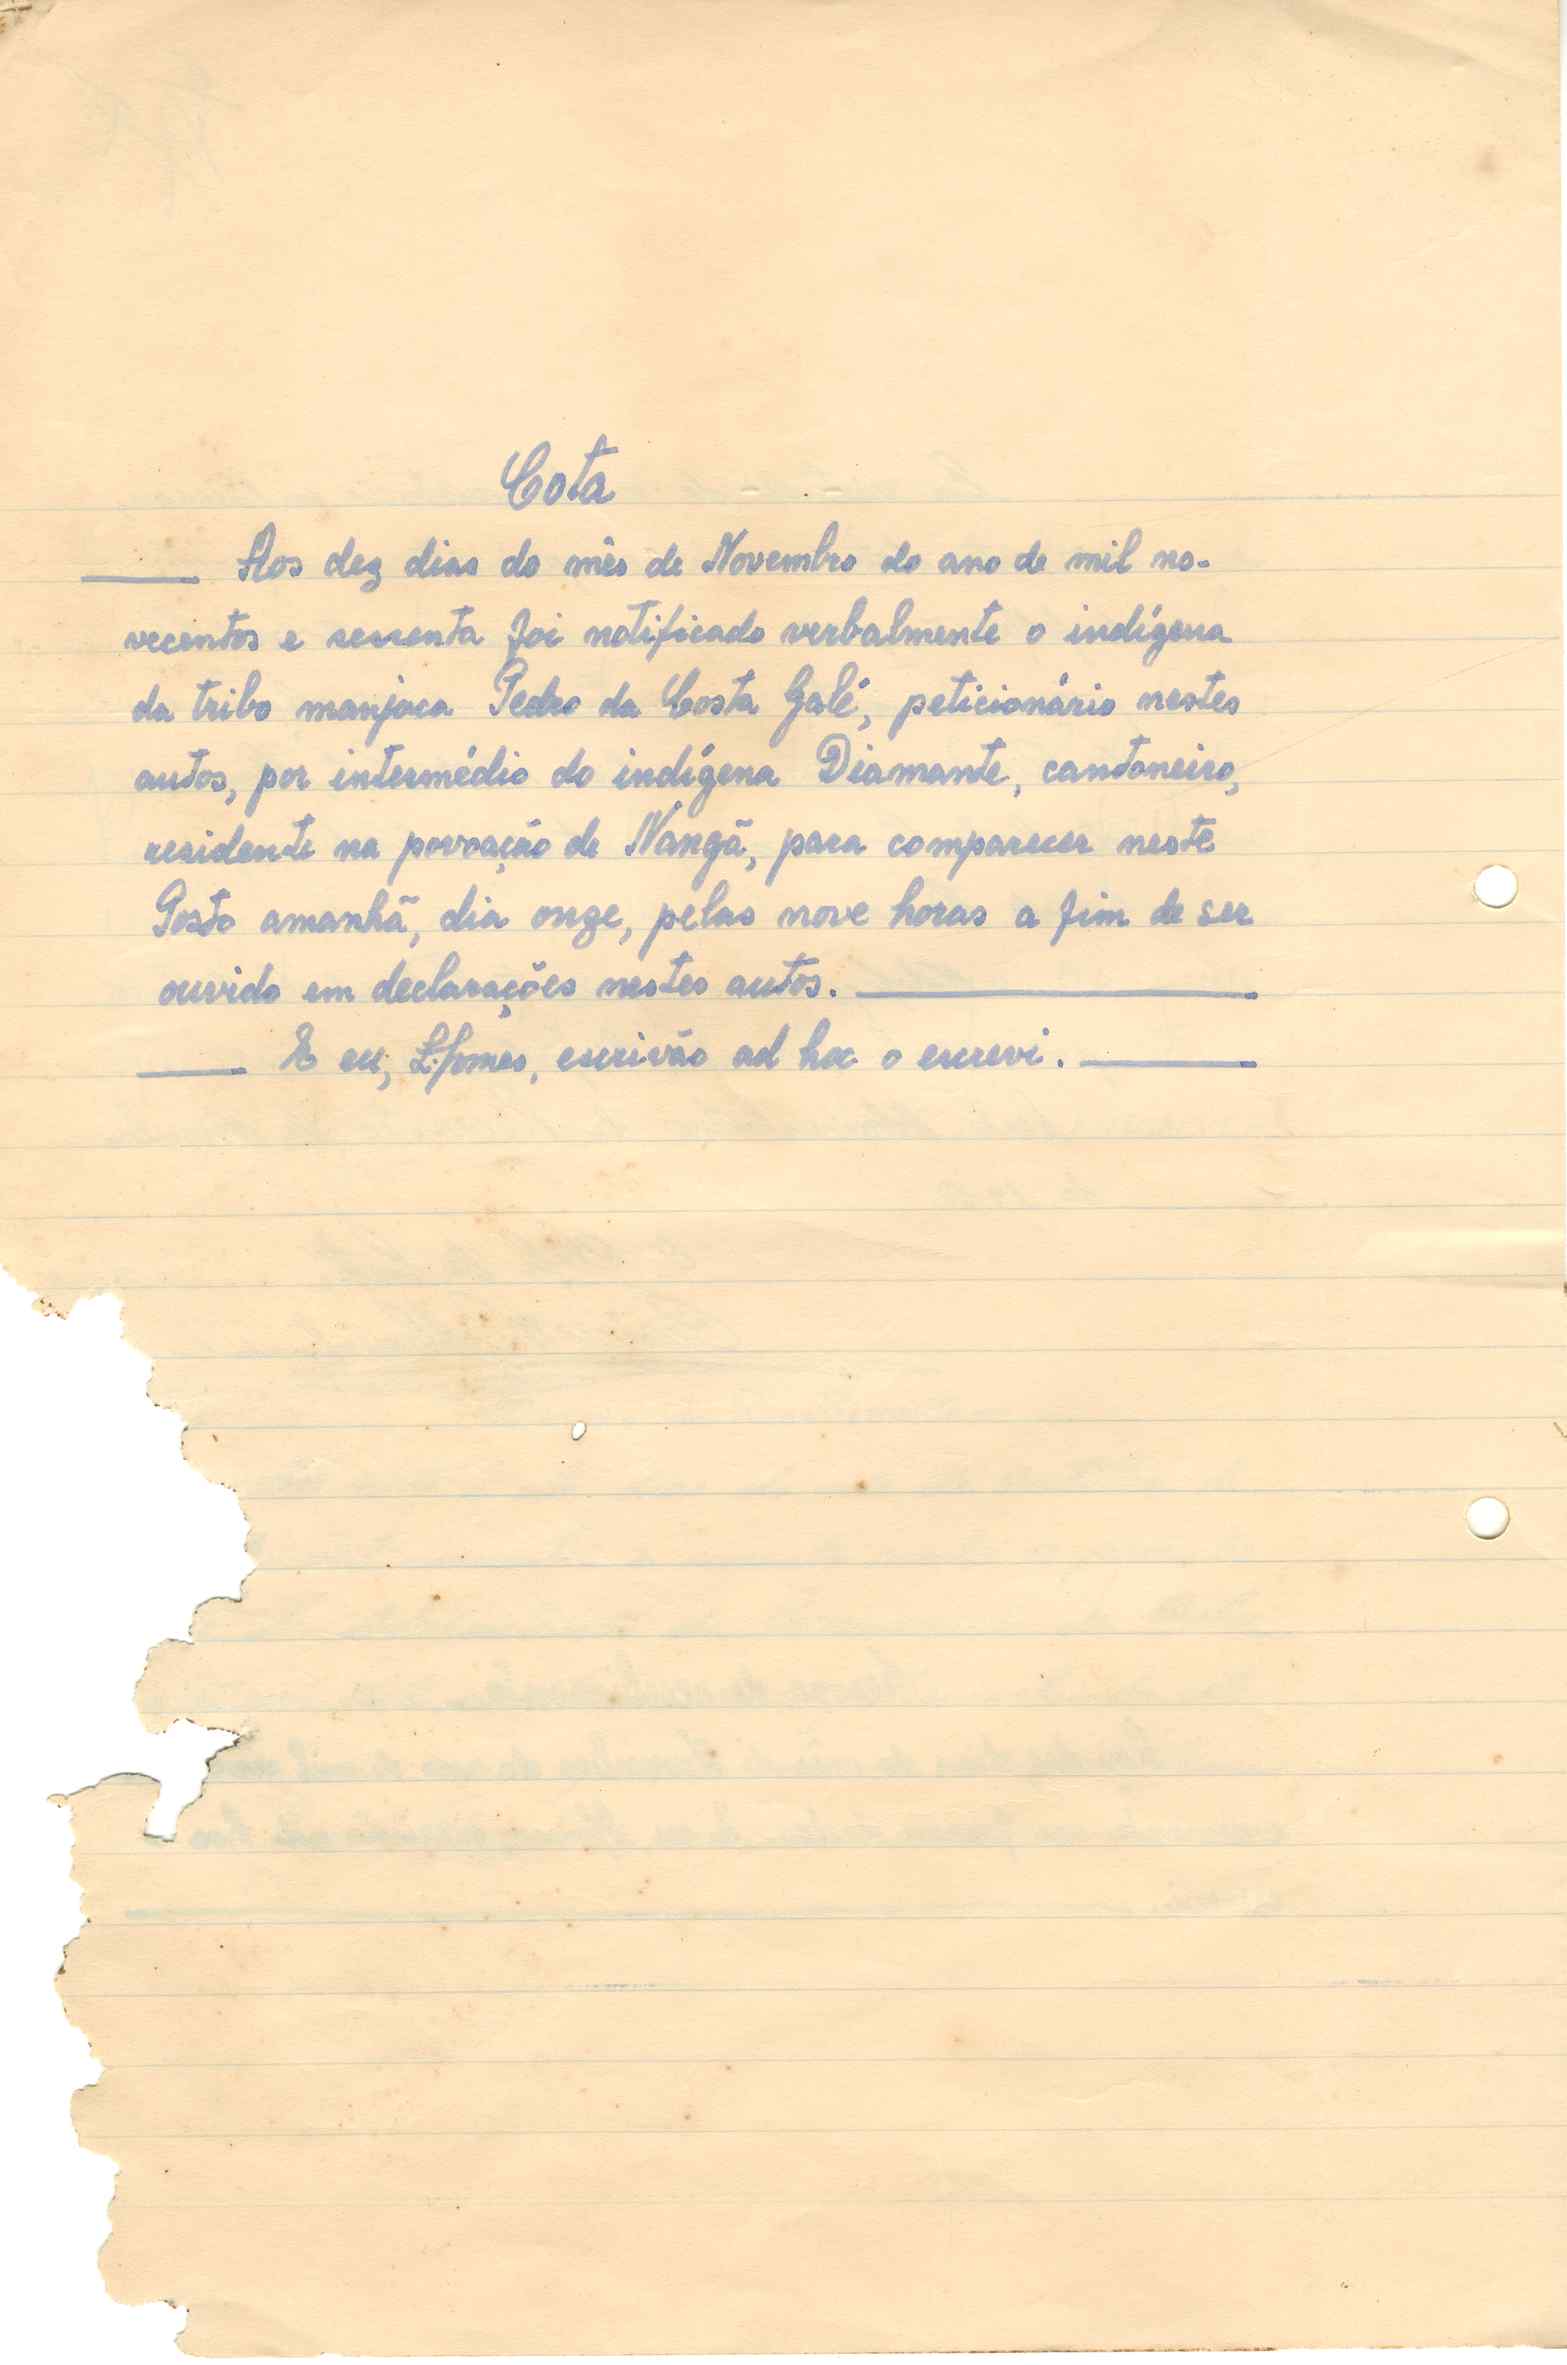 Cota
Aos dez dias do mês de Novembro do ano de mil no-
vecentos e sessenta foi notificado verbalmente o indígena
da tribo manjaca Pedro da Costa Galé, peticionário nestes
autos, por intermédio do indígena Diamante, cantoneiro,
residente na povoação de Nangã, para comparecer neste
Posto amanhã, dia onze, pelas nove horas a fim de ser
ouvido em declarações nestes autos.
E eu, L. Gomes, escrivão ad hoc o escrevi.